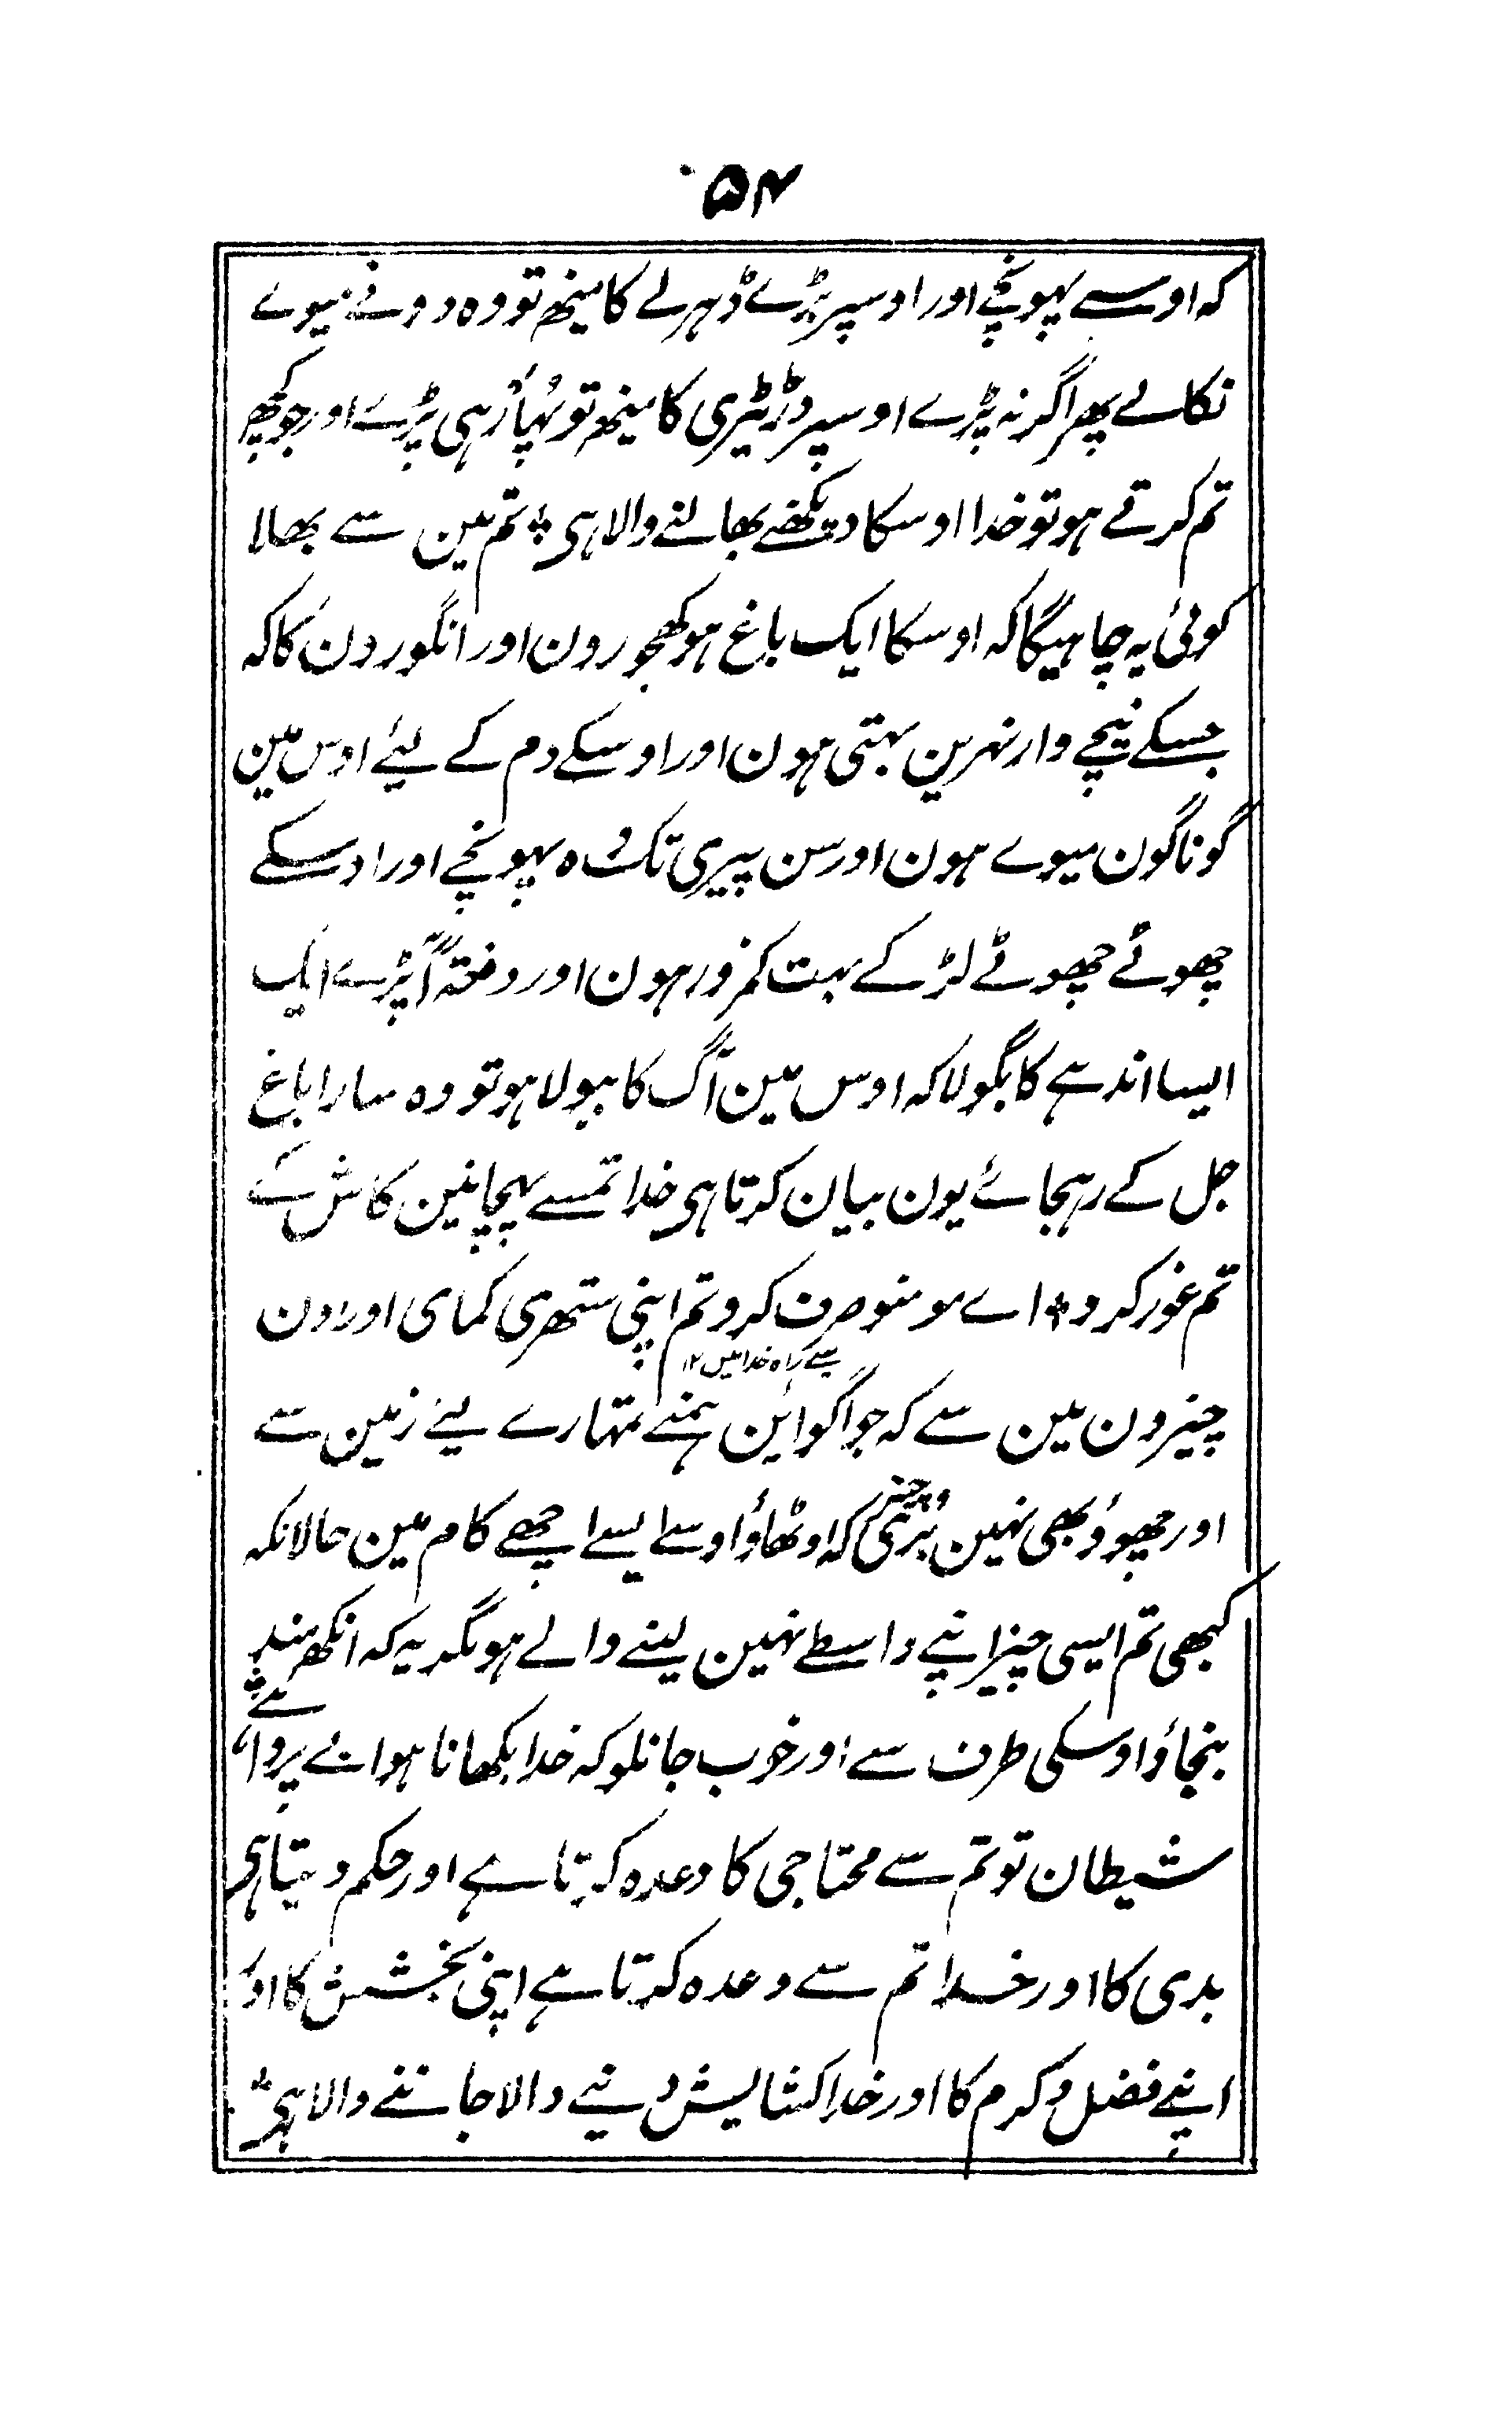 ۵۴
کہ اوسے پہونچے اور اوسپر بڑے ڈہرلے کا مینھ تو وہ دونے میوے
نکالے پھر اگر نہ پڑے اوسپر دڑیڑی کا مینھ تو پُہاڑ ہی پڑے اور جو کچھ
تم کرتے ہو تو خدا اوسکا دیکھنے بھالنے والا ہی ؛ تم مین سے بھلا
کوئی یہ چاہیگا کہ اوسکا ایک باغ ہو کھجورون اور انگورون کا کہ
جسکے نیچے وار نہرین بہتی ہون اور اوسکے دم کے لیئے اوس مین
گوناگون میوے ہون اور سن پیری تک وہ پہونچے اور اوسکے
چھوٹے چھوٹے لڑکے بہت کمزور ہون اور دفعتہً آپڑے ایک
ایسا اندہے کا بگولا کہ اوس مین آگ کا ببولا ہو تو وہ سارا باغ
جل کے رہجائے یون بیان کرتا ہی خدا تمسے پہچانین کاش کے
تم غور کرو ؛ اے مومنو صرف کرو تم اپنی ستھری کمای اور اون
یعنے راہ خدا میں ۱۲
چیزون مین سے کہ جو اگوائین ہمنے تمہارے لیئے زمین سے
اور چھوؤ بھی نہین وہ چیز بُرتی کہ اوٹھاؤ اوسے ایسے اچھے کام مین حالانکہ
کبھی تم ایسی چیز اپنے واسطے نہین لینے والے ہو مگر یہ کہ انکھ بند
بنجاؤ اوسکی طرف سے اور خوب جانلو کہ خدا بکھانا ہوا بے پروا ہے
شیطان تو تم سے محتاجی کا وعدہ کرتا ہے اور حکم دیتا ہی
بدی کا اور خدا تم سے وعدہ کرتا ہے اپنی بخشش کا اور
اپنے فضل و کرم کا اور خدا کشایش دینے والا جاننے والا ہی ؛